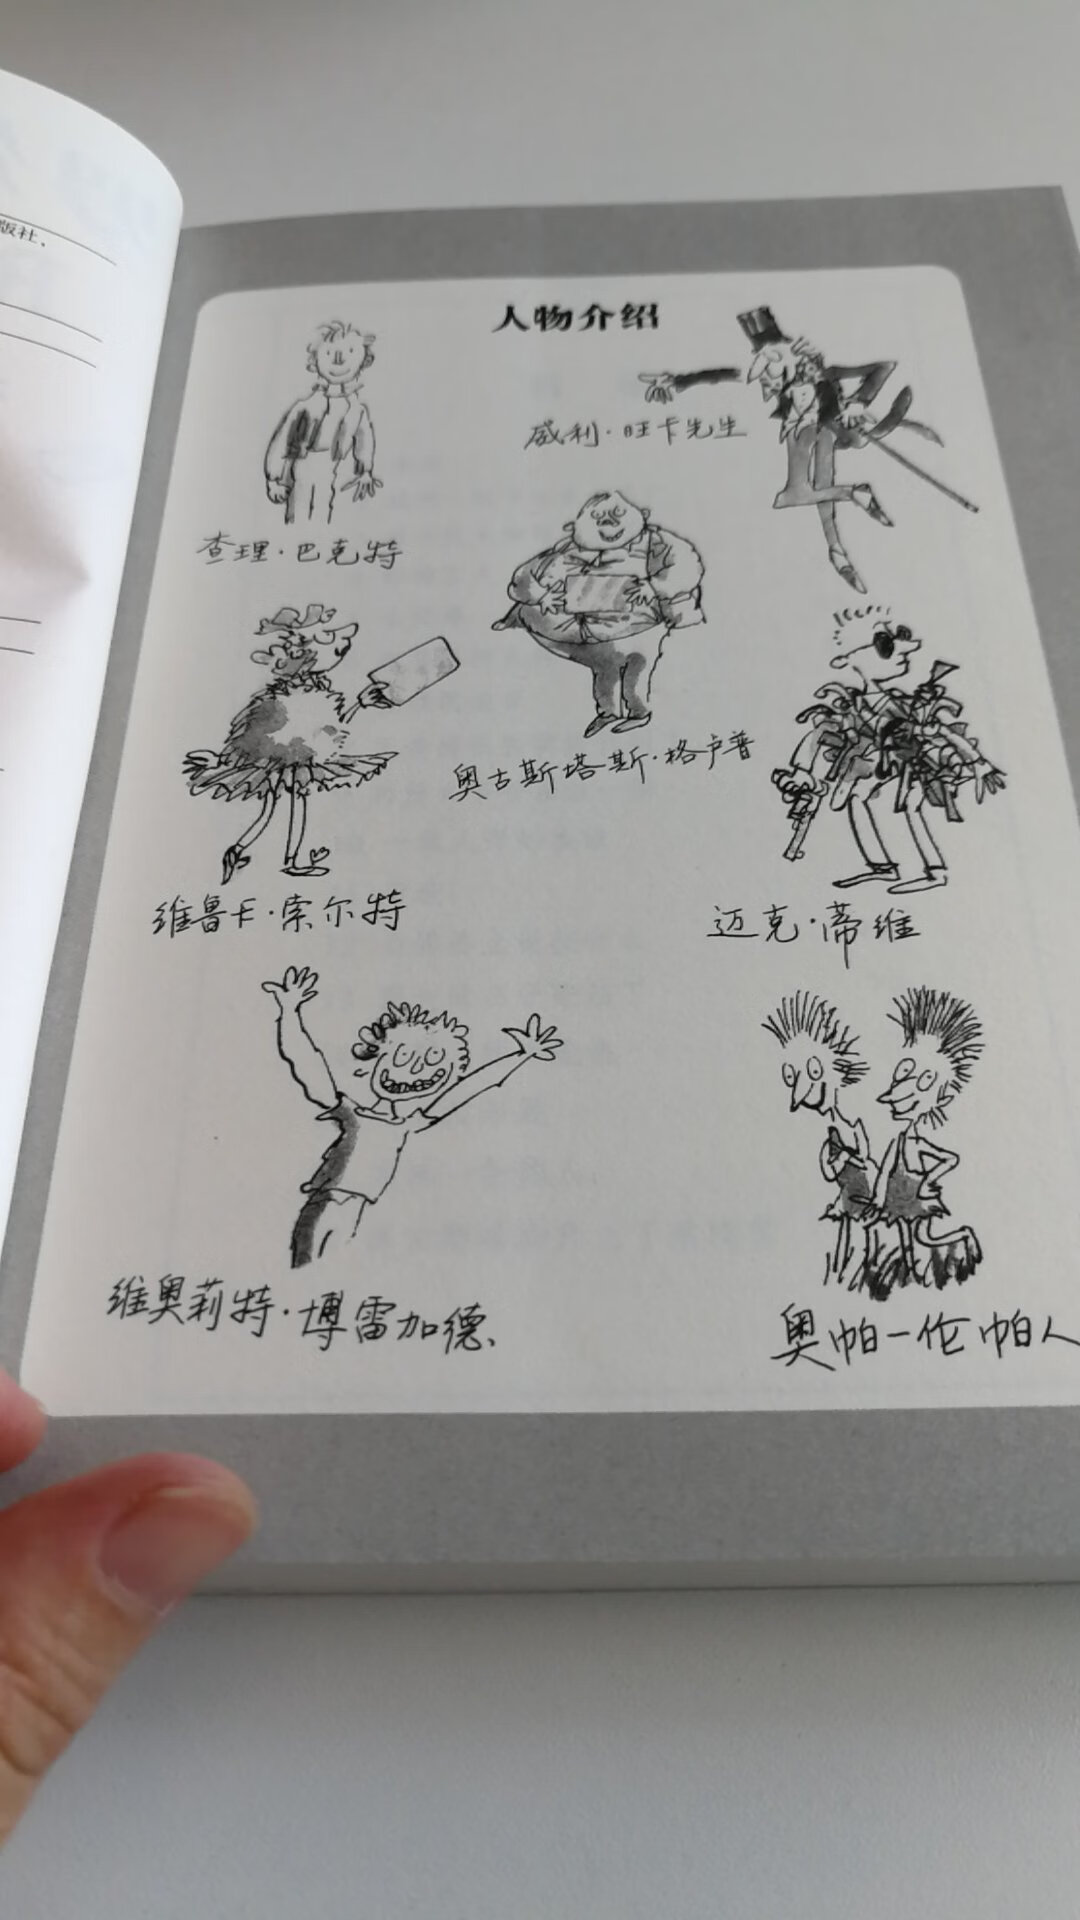 版社，
人物介绍
威利·旺卡先生
查理·巴克特
奥古斯塔斯·格卢普
维鲁卡·索尔特
迈克·蒂维
维奥莉特·博雷加德
奥帕一伦帕人